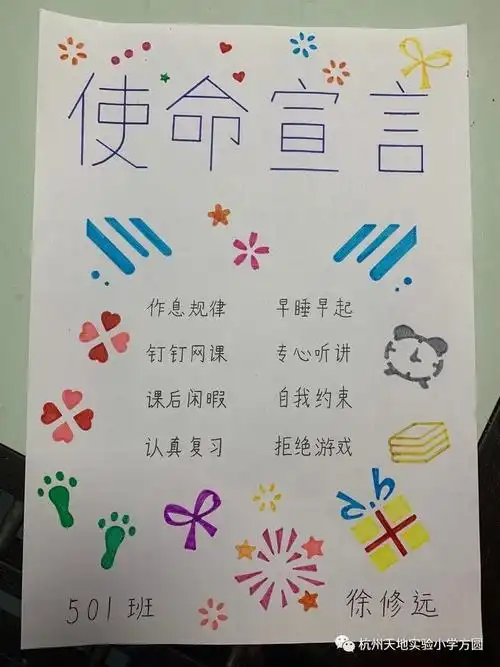 使命宣言
作息规律 早睡早起
钉钉网课 专心听讲
课后闲暇 自我约束
认真复习 拒绝游戏
501班 徐修远
杭州天地实验小学方圆